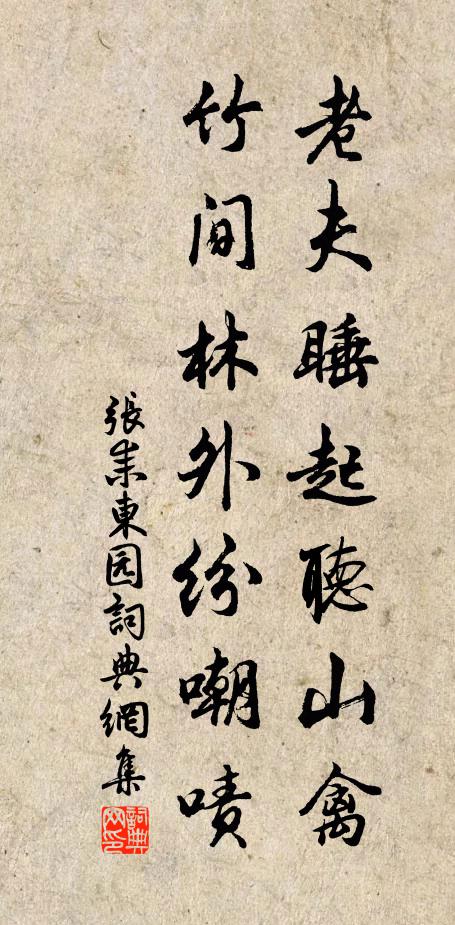 老夫睡起聴山禽
竹间林外纷嘲啧
張耒東园詞典網集
詞典网印